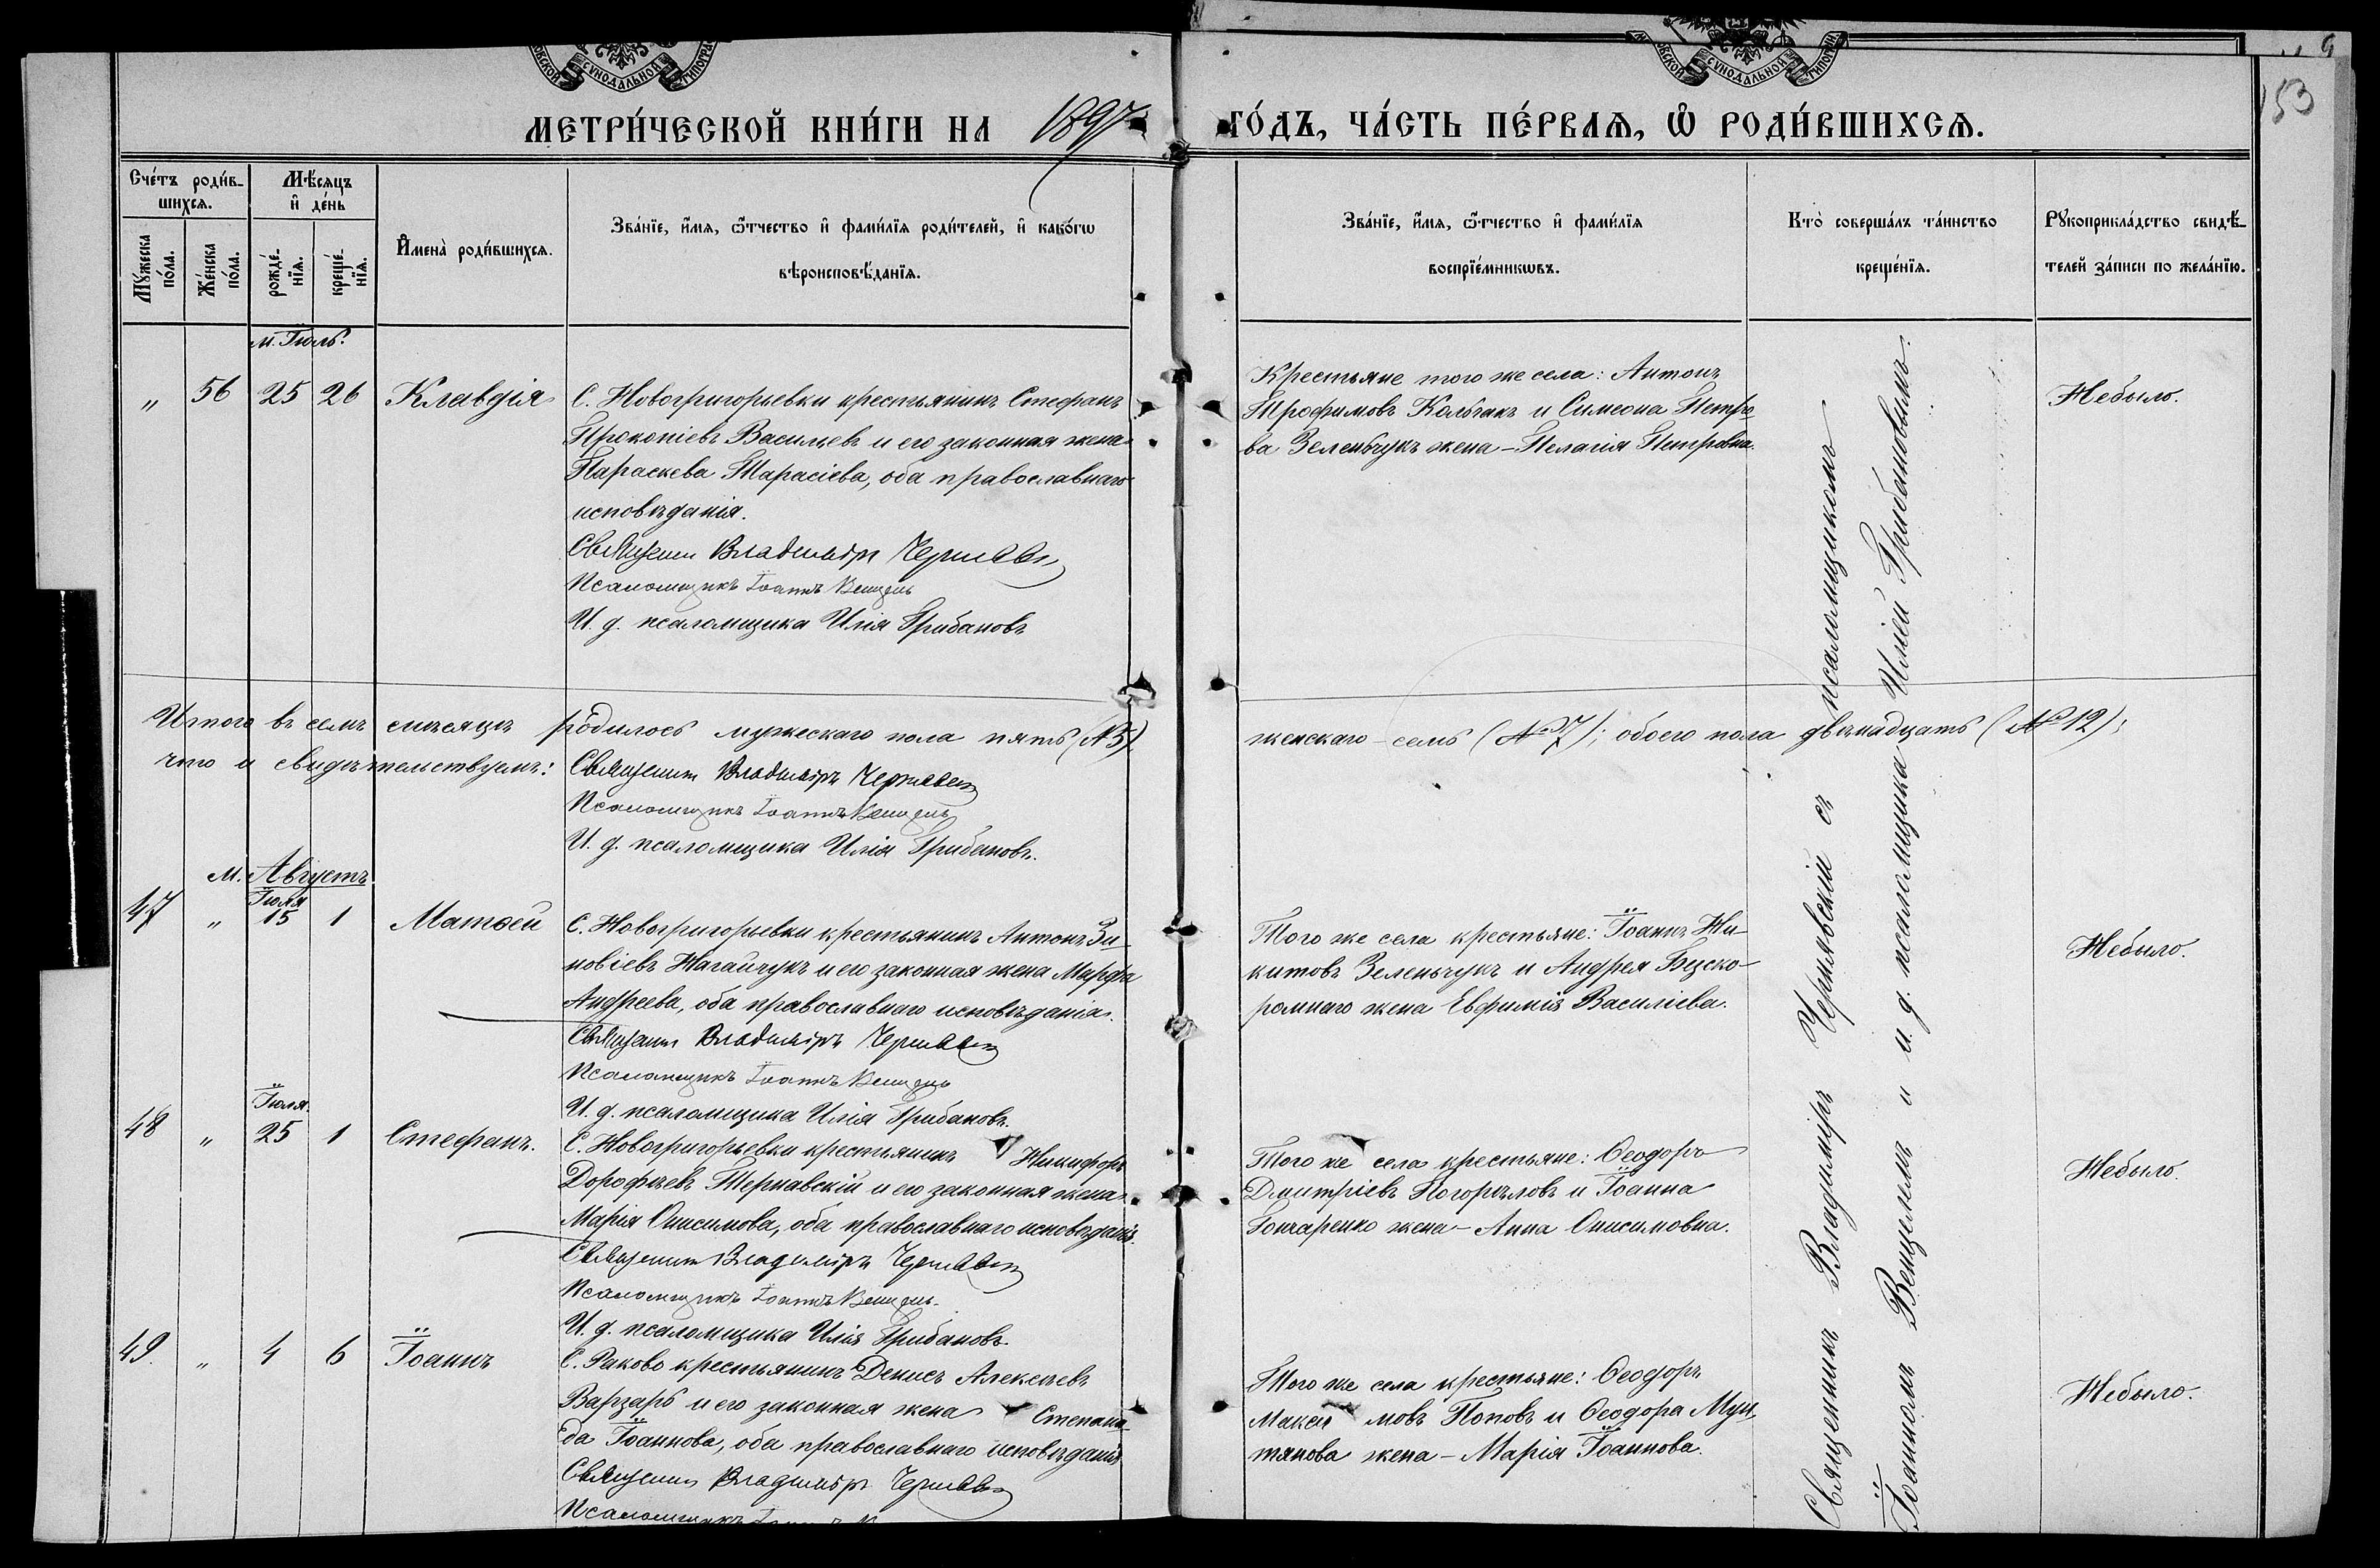 МОСКОВСКОЙ СѴНОДАЛЬНОЙ ТИПОГРАФІИ
МЕТРИ́ЧЕСКОЙ КНИ́ГИ НА 1897
ГО́ДЪ, ЧА́СТЬ ПЕ́РВАѦ, Ѡ҆ РОДИ́ВШИХСѦ.
153
Сче́тъ роди́в-
шихсѧ.
Мѣ́сѧцъ
и҆ де́нь
Мꙋ́жеска
по́ла.
Же́нска
по́ла.
рожде́-
нїѧ.
креще́-
нїѧ.
И҆мена̀ роди́вшихсѧ.
Зва́нїе, и҆́мѧ, ѻ҆́тчество и҆ фами́лїѧ роди́телей, и҆ како́гѡ
вѣроисповѣ́данїѧ.
Зва́нїе, и҆́мѧ, ѻ҆́тчество и҆ фами́лїѧ
воспрїе́мникѡвъ.
Кто̀ соверша́лъ та́инство
креще́нїѧ.
Рꙋкоприкла́дство свидѣ́-
телей за́писи по жела́нїю.
м. Іюль.
" 56 25 26 Клавдія
С. Новогригорьевки крестьянинъ Стефанъ
Прокопіевъ Васильевъ и его законная жена
Параскева Тарасіева, оба православнаго
исповѣданія.
Священникъ Владиміръ Чернявскій
Псаломщикъ Іоаннъ Венцель
И. д. псаломщика Илія Грибановъ
Крестьяне того же села: Антонъ
Трофимовъ Колъчакъ и Симеона Петро
ва Зеленчукъ жена - Пелагія Петровна.
Небыло.
Итого въ семъ мѣсяцѣ родилось мужескаго пола пять (№5)
женскаго семь (№ 7); обоего пола двѣнадцать (№ 12);
что и свидѣтельствуемъ: Священникъ Владиміръ Чернявскій
Псаломщикъ Іоаннъ Венцель
И. д. псаломщика Илія Грибановъ.
М. Августъ
Іюля
47 " 15 1 Матѳей
С. Новогригорьевки крестьянинъ Антонъ Зи-
новіевъ Нагайчукъ и его законная жена Марфа
Андреева, оба православнаго исповѣданія.
Священникъ Владиміръ Чернявскій
Псаломщикъ Іоаннъ Венцель
И. д. псаломщика Илія Грибановъ.
Того же села крестьяне: Іоаннъ Ни-
китовъ Зеленьчукъ и Андрея Безско-
ромнаго жена Евфимія Василіева.
Небыло.
Іюля
48 " 25 1 Стефанъ.
С. Новогригорьевки крестьянинъ Никифоръ
Дорофѣевъ Тернавскій и его законная жена
Марія Онисимова, оба православнаго исповѣданія.
Священникъ Владиміръ Чернявскій
Псаломщикъ Іоаннъ Венцель.
И. д. псаломщика Илія Грибановъ.
Того же села крестьяне: Ѳеодоръ
Дмитріевъ Погорѣловъ и Іоанна
Гончаренко жена - Анна Онисимовна.
Небыло.
49. " 4 6 Іоаннъ
С. Раково крестьянинъ Денисъ Алексѣевъ
Варзарь и его законная жена Степани
да Іоаннова, оба православнаго исповѣданія
Священникъ Владиміръ Чернявскій
Псаломщикъ
Того же села крестьяне: Ѳеодоръ
Макси мовъ Поповъ и Ѳеодора Мун
тянова жена - Марія Іоаннова.
Небыло.
Священникъ Владиміръ Чернявскій съ псаломщикомъ
Іоанномъ Венцелемъ и и. д. псаломщика Иліей Грибановымъ.